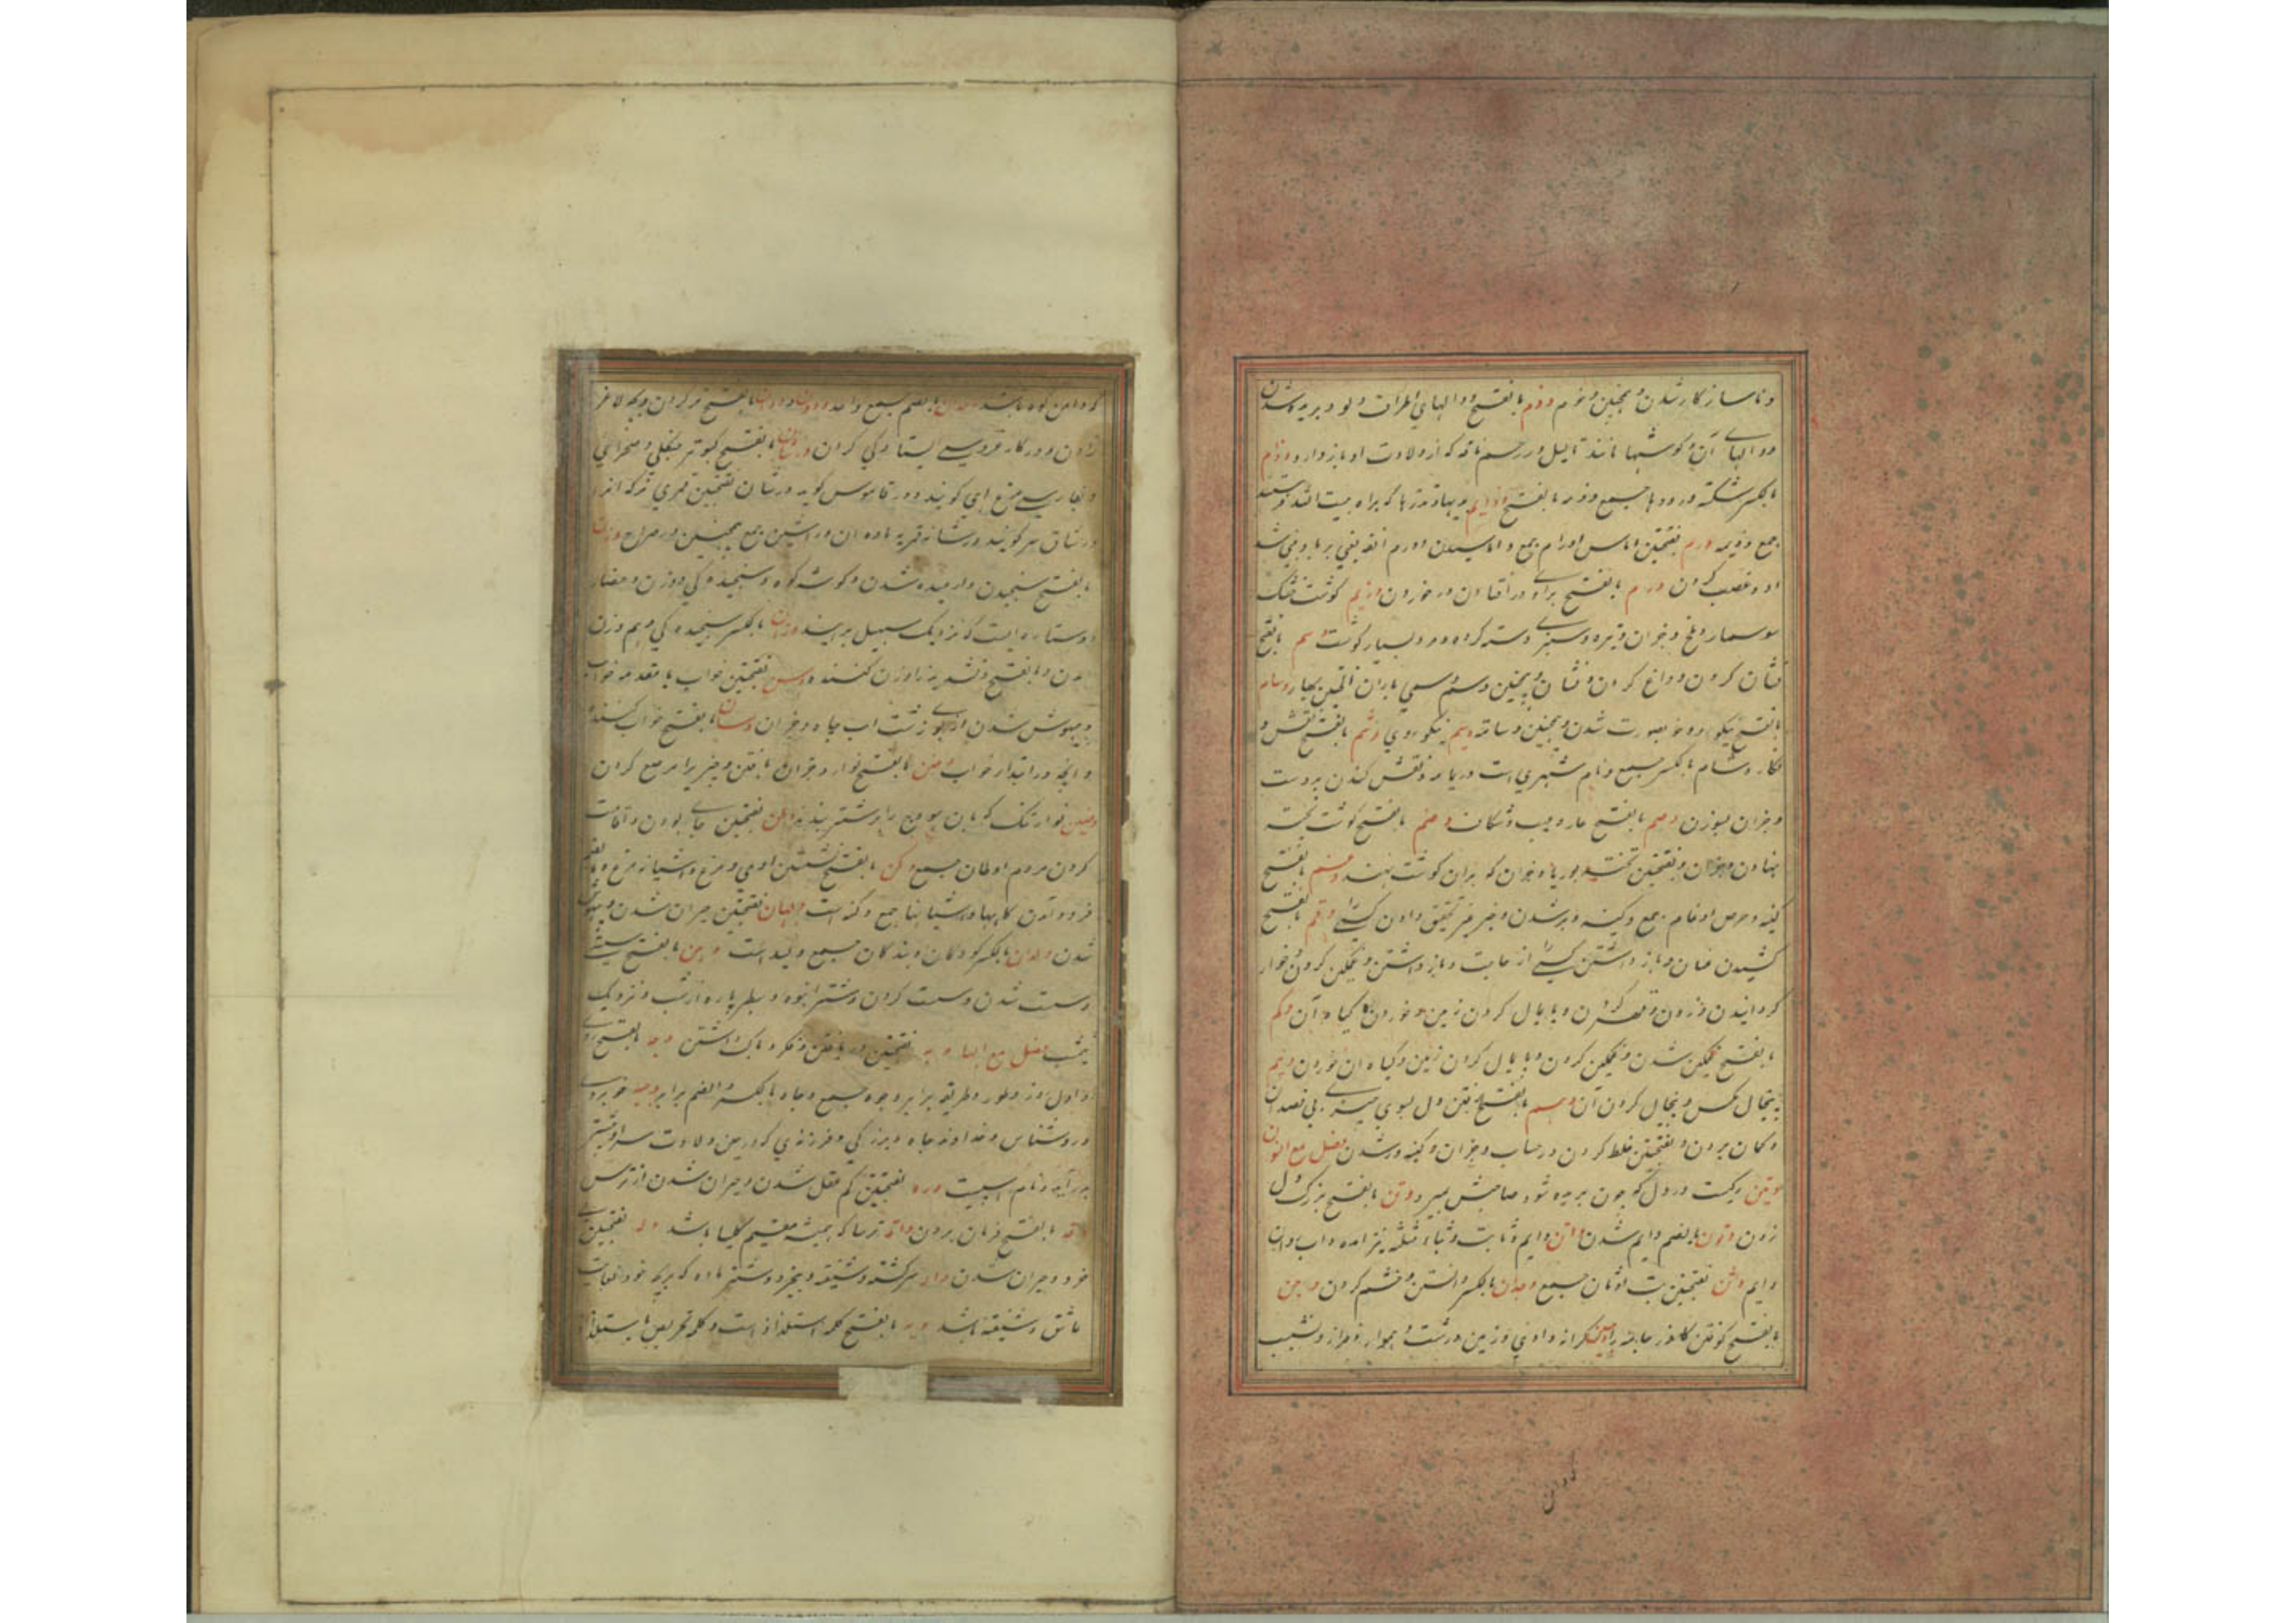 و ناساز کار شدن و بچنین وخم وذم بالفتح دوالهای اطراف دلو و بریده شدن
دوالهای آن و گوشتها مانند ثالیل در رحم ناقه که از ولادت او باز دارد وذام
بالکسر شکنبه و رودها جمع وذمه بالفتح وذایم هدیها و نذرها که براه بیت الله فرستند
جمع وذیمه ورم بفتحتین اماس اورام جمع و اماسیدن اورم انفه یعنی بر باد وفی شد
او و غضب کردن بالفتح در افتادن و خوردن وزیم گوشت خشک
سوسمار و ملخ و جزان و تیره و سبزی دسته کرده و مرد بسیار گوشت وسم بالفتح
نشان کردن و داغ کردن و نشان و بچنین وسم وسمی باران اولین بهار وسام
بالفتح نیکو رو و خوبصورت شدن و بچنین وسامة وسیم نیکو روی وشم بالفتح نقش و
نکار وشام بالکسر جمع و نام شهری است در یمامه و نقش کندن بر دست
و جزان بسوزن وصم بالفتح عار و عیب و شکاف وضم بالفتح گوشت تخته
نهادن و جزان و بفتحتین تخته بوریا و جزان که بران گوشت نهند وغم بالفتح
کینه و حرص اوغام جمع و کینه ور شدن و خبر غیر تحقیق دادن کسی را وقم بالفتح
کشیدن عنان و باز داشتن کسی را از حاجت و باز داشتن و غمکین کردن و خوار
کردانیدن و زدن و قهر کردن و پایمال کردن زمین و خوردن گیاه آن وکم
بالفتح غمکین شدن و غمکین کردن و پایمال کردن زمین و گیاه آن خوردن ونیم
پیخال مکس و پیخال کردن آن وهم بالفتح رفتن دل بسوی چیزی بی قصد آن
و کمان بردن و بفتحتین غلط کردن در حساب و جزان و کینه ور شدن فصل مع النون
وتین رگیست در دل که چون بریده شود صاحبش بمیرد وتن بالفتح بزرگ دل
زدن وتون بالضم دایم شدن واتن دایم و ثابت و بثاء مثلثه نیز امده و اب
دایم وثن بفتحتین بت اوثان جمع وجدان بالکسر دانستن و خشم کردن وجن
بالفتح کوفتن کازر جامه را وجین کرانه وادی و زمین درشت و هموار و فراز و نشیب
که دامن کوه باشد وحدان بالضم جمع واحد بالفتح تر کردن و بچه لاغر
زادن و در کار فرو ایستادگی کردن ورشان بالفتح کبوتر جنکلی و صحرائی
و بفارسی مرغ الهی گویند و در قاموس گوید ورشان بفتحتین قمری نر که انرا
ورشان ساق حر گویند ورشانه قمریه ماده ان وراشین جمع بچنین در صراح وزن
بالفتح سنجیدن و ارمیده شدن و گوشه کوه و سنجیدگی و وزن و مقدار
و ستاره ایست که نزدیک سهیل براید وزان بالکسر سنجیدگی و هم وزن
و بالفتح و تشدید زا وزن کننده وسن بفتحتین خواب یا مقدمه خواب
و بیهوش شدن از بوی زشت اب چاه و جزان وسنان بالفتح خواب کننده
و انکه در ابتدای خواب وضن بالفتح نوار و جزان بافتن و چیز را مرصع کردن
وضین نوار تنک که بان هودج را بر شتر بندند وطن بفتحتین جای بودن و اقامت
کردن مردم اوطان جمع وکن بالفتح نشستن ادمی و مرغ و اشیانه مرغ
فرود آمدن گاهها و اشیانها جمع وکنه است ولهان بفتحتین حیران شدن و بیهوش
شدن ولدان بالکسر کودکان و بندکان جمع ولید است وهن بالفتح سستی
و سست شدن و سست کردن و شتر انبوه و سطبر پاره از شب و نزدیک
نیم شب فصل مع الها وبه بفتحتین دریافتن و فکر و باک داشتن وجه بالفتح روی
و اول روز و طور و طریقه برابر وجوه جمع وجاه بالکسر و الضم برابر وجیه خوبرو
و روشناس و خداوند جاه و بزرگی و فرزندی که در حین ولادت سر او پیشتر
براید و نام اسپیست وره بفتحتین کم عقل شدن و حیران شدن از ترس
وقه بالفتح فرمان بردن واقه ترسا که همیشه مقیم کلیسا باشد وله بفتحتین بی
خرد و حیران شدن واله سرکشته و شیفته و بیخرد و شتر ماده که بر بچه خود بغایت
عاشق و شیفته باشد ویه بالفتح کلمه استلذاذ است و کلمه تحریص